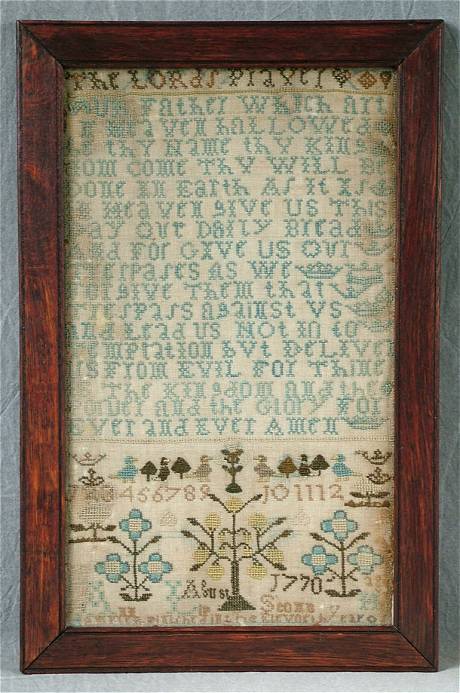 The LORds Prayer
OUR Father Which Art
In Heaven hallowed
thy Name thy King
Dom Come Thy Will Be
Done in Earth As it is
Heaven Give Us This
Day Our Daily Bread
And For Give us Our
Trespases As We
Forgive Them that
Trespass Against Us
and Lead us Not in to
Temptation but Deliver
us From Evil For Thine
The Kingdom and the
Power and the Glory For
Ever and Ever Amen
3456789 101112
August 1770
Ann
finished in the Eleventh year